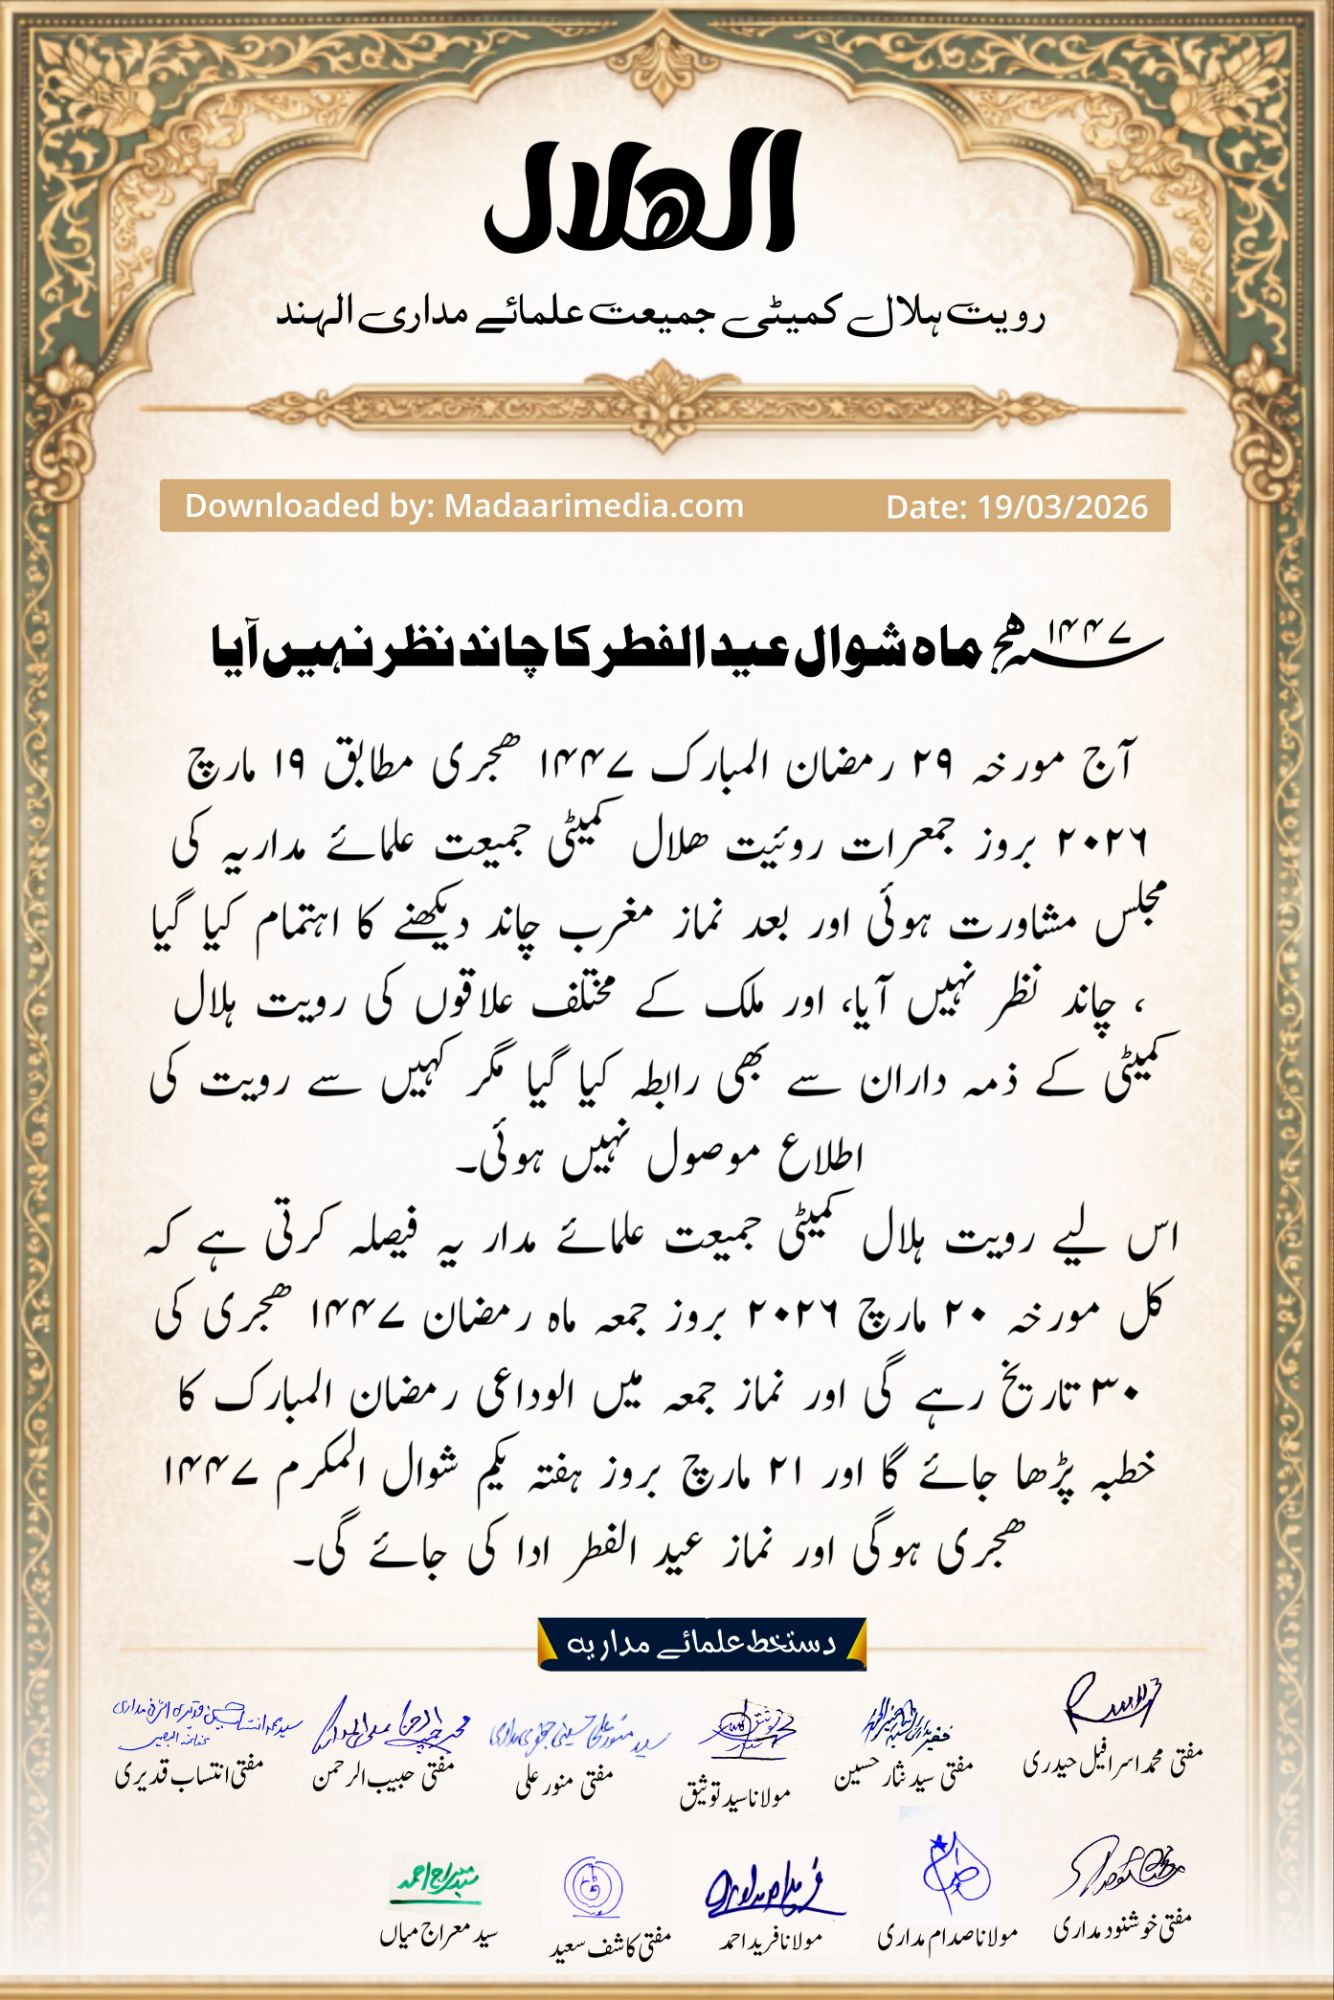 الهلال
رویت ہلال کمیٹی جمیعت علمائے مداری الہند
Downloaded by: Madaarimedia.com Date: 19/03/2026
۱۴۴۷ھج ماہ شوال عید الفطر کا چاند نظر نہیں آیا
آج مورخہ ۲۹ رمضان المبارک ۱۴۴۷ ھجری مطابق ۱۹ مارچ
۲۰۲۶ بروز جمعرات روئیت ھلال کمیٹی جمیعت علمائے مداریہ کی
مجلس مشاورت ہوئی اور بعد نماز مغرب چاند دیکھنے کا اہتمام کیا گیا
، چاند نظر نہیں آیا، اور ملک کے مختلف علاقوں کی رویت ہلال
کمیٹی کے ذمہ داران سے بھی رابطہ کیا گیا مگر کہیں سے رویت کی
اطلاع موصول نہیں ہوئی۔
اس لیے رویت ہلال کمیٹی جمیعت علمائے مدار یہ فیصلہ کرتی ہے کہ
کل مورخہ ۲۰ مارچ ۲۰۲۶ بروز جمعہ ماہ رمضان ۱۴۴۷ ھجری کی
۳۰ تاریخ رہے گی اور نماز جمعہ میں الوداعی رمضان المبارک کا
خطبہ پڑھا جائے گا اور ۲۱ مارچ بروز ہفتہ یکم شوال المکرم ۱۴۴۷
ھجری ہوگی اور نماز عید الفطر ادا کی جائے گی۔
دستخط علمائے مداریہ
مفتی محمد اسرافیل حیدری
مفتی سید نثار حسین
مولانا سید توثیق
مفتی منور علی
مفتی حبیب الرحمن
مفتی انتساب قدیری
مفتی خوشنود مداری
مولانا صدام مداری
مولانا فرید احمد
مفتی کاشف سعید
سید معراج میاں